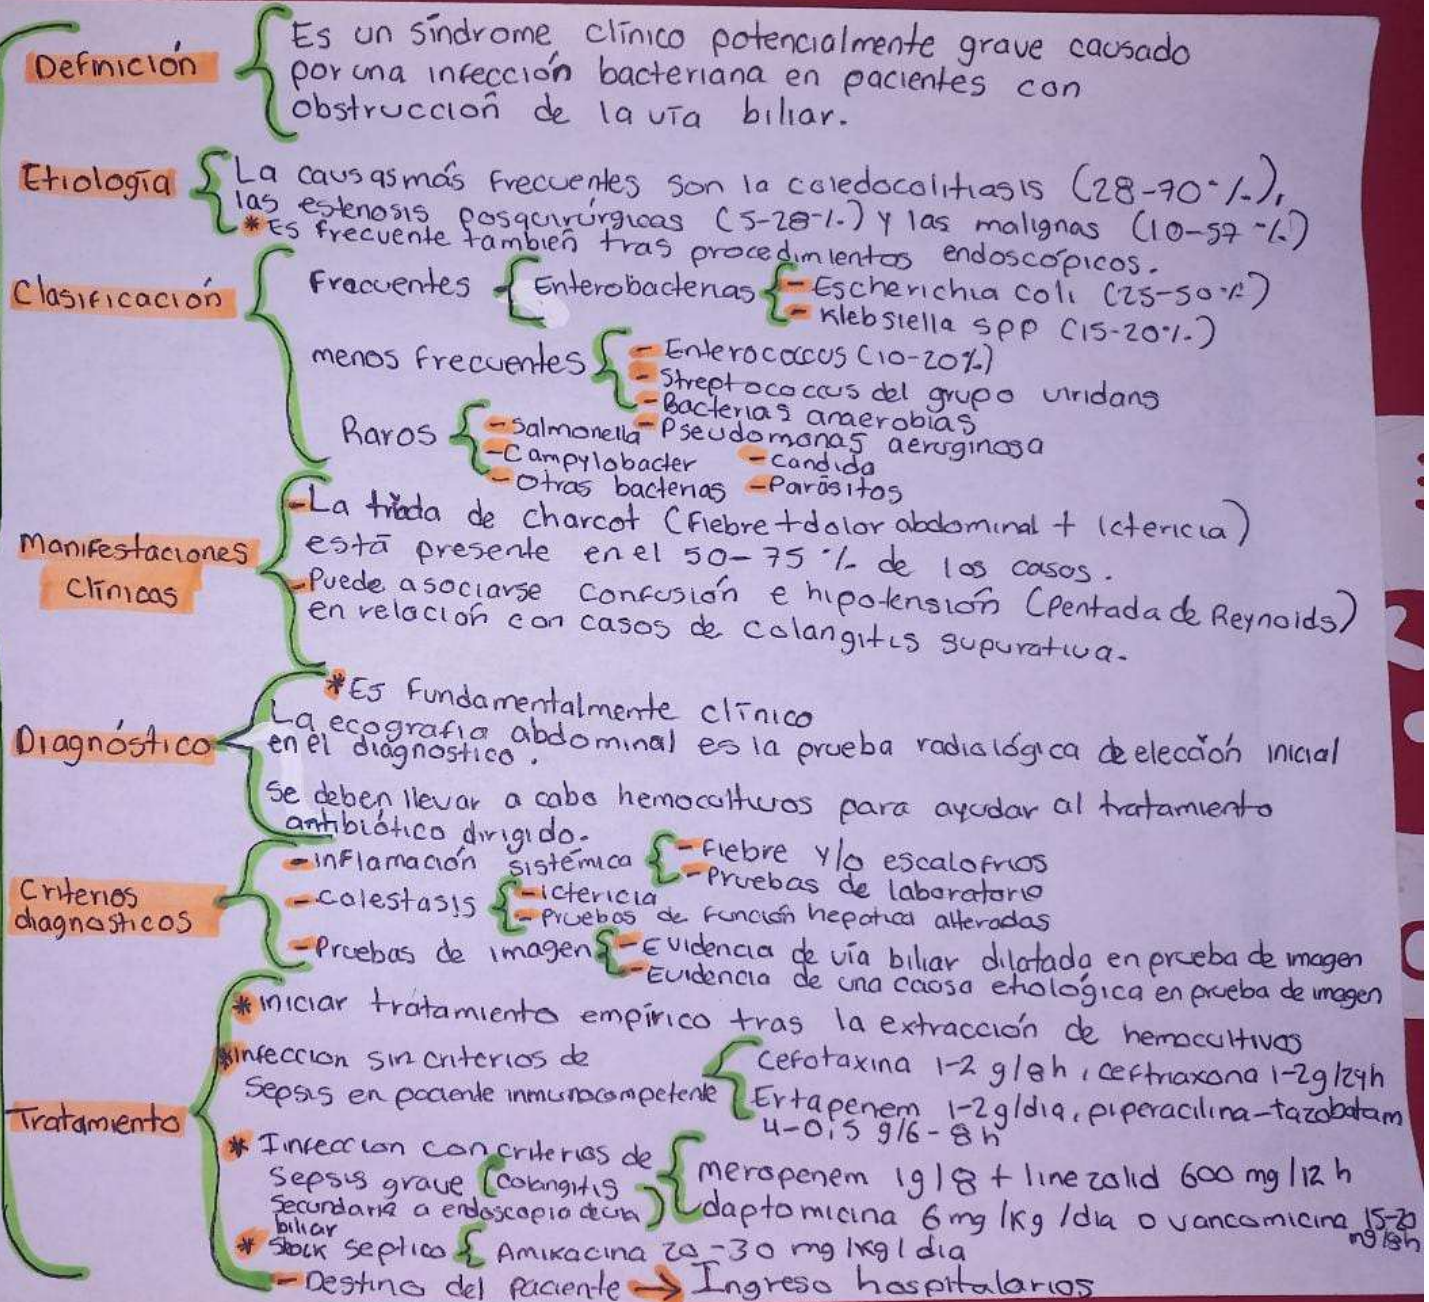 Definición
Es un síndrome clínico potencialmente grave causado
por una infección bacteriana en pacientes con
obstrucción de la vía biliar.
Etiología
La causas más frecuentes son la coledocolitiasis (28-70%),
las estenosis posquirúrgicas (5-28%) y las malignas (10-57%)
*Es frecuente también tras procedimientos endoscópicos.
Clasificación
Frecuentes
Enterobacterias
- Escherichia coli (25-50%)
- Klebsiella spp (15-20%)
menos frecuentes
- Enterococcus (10-20%)
- Streptococcus del grupo viridans
- Bacterias anaerobias
Raros
- Salmonella - Pseudomonas aeruginosa
- Campylobacter - Candida
- Otras bacterias - Parásitos
Manifestaciones
Clínicas
- La triada de charcot (fiebre + dolor abdominal + ictericia)
está presente en el 50-75% de los casos.
- Puede asociarse confusión e hipotensión (Pentada de Reynolds)
en relación con casos de colangitis supurativa.
Diagnóstico
*Es fundamentalmente clínico
La ecografia abdominal es la prueba radiológica de elección inicial
en el diagnostico.
se deben llevar a cabo hemocultivos para ayudar al tratamiento
antibiótico dirigido.
Criterios
diagnosticos
- inflamación sistémica
- fiebre y/o escalofrios
- Pruebas de laboratorio
- colestasis
- ictericia
- Pruebas de función hepatica alteradas
- Pruebas de imagen
- Evidencia de vía biliar dilatada en prueba de imagen
- Evidencia de una causa etiológica en prueba de imagen
Tratamiento
*iniciar tratamiento empírico tras la extracción de hemocultivos
*infeccion sin criterios de
sepsis en paciente inmunocompetente
Cefotaxina 1-2 g/8h, ceftriaxona 1-2g/24h
Ertapenem 1-2g/dia, piperacilina-tazobatam
4-0,5 g/6-8h
* Infeccion con criterios de
sepsis grave (colangitis
secundaria a endoscopia de via
biliar)
meropenem 1g/8 + linezolid 600 mg/12 h
daptomicina 6 mg/Kg/dia o vancomicina 15-20
mg/8h
* Shock septico
Amikacina 20-30 mg/kg/dia
- Destino del paciente → Ingreso hospitalarios